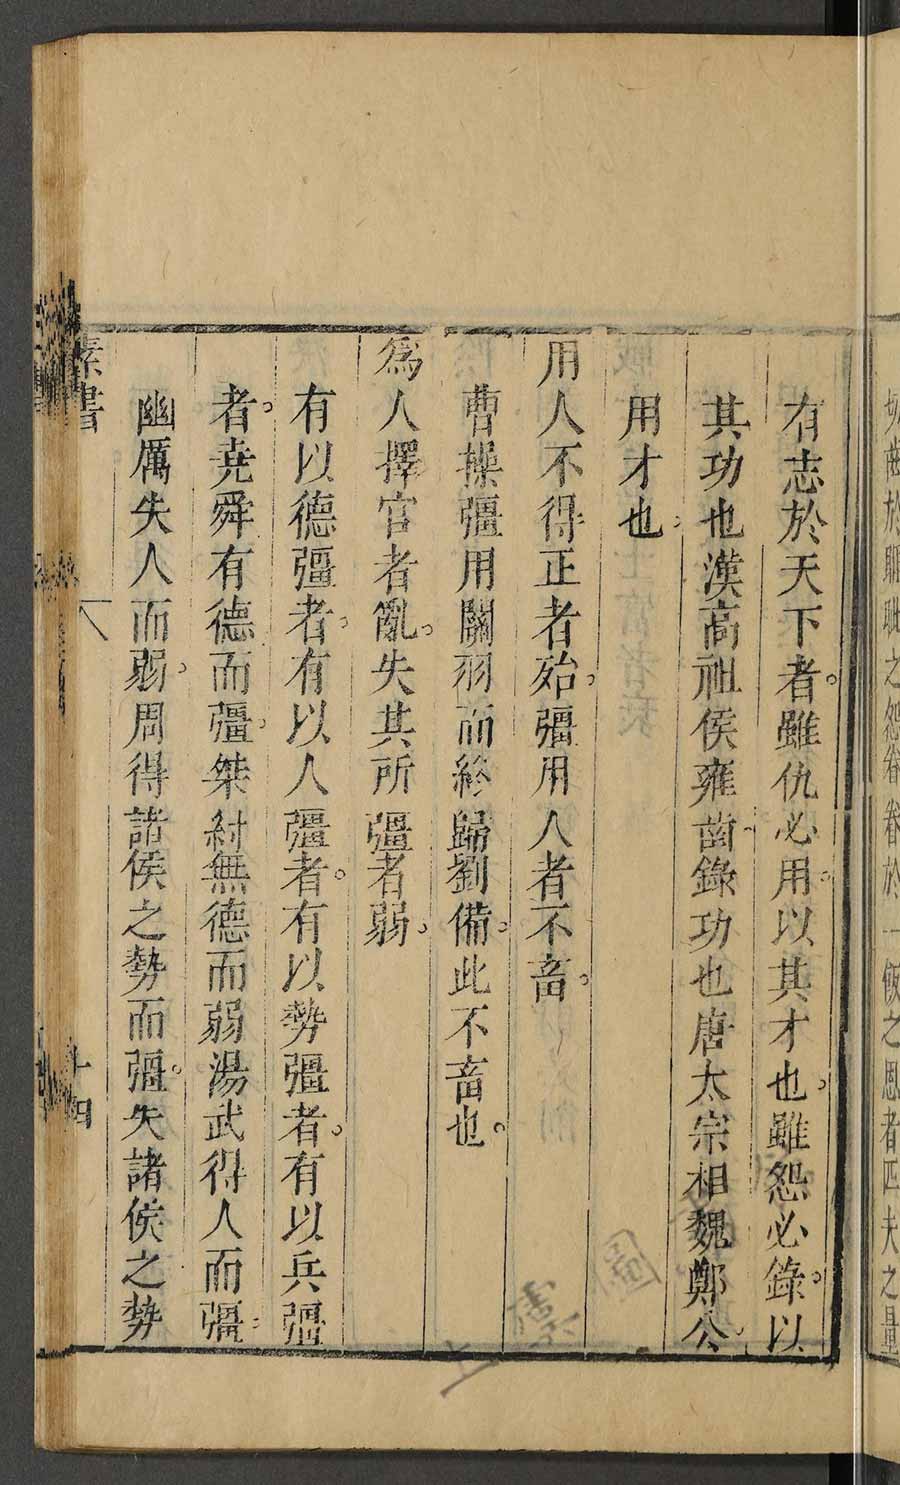 切齒於睚眦之怨眷眷於一飯之恩者匹夫之量
有志於天下者雖仇必用以其才也雖怨必錄以
其功也漢高祖侯雍齒錄功也唐太宗相魏鄭公
用才也
用人不得正者殆彊用人者不畜
曹操彊用關羽而終歸劉備此不畜也
為人擇官者亂失其所彊者弱
有以德彊者有以人彊者有以勢彊者有以兵彊
者堯舜有德而彊桀紂無德而弱湯武得人而彊
幽厲失人而弱周得諸侯之勢而彊失諸侯之勢
素書
十四